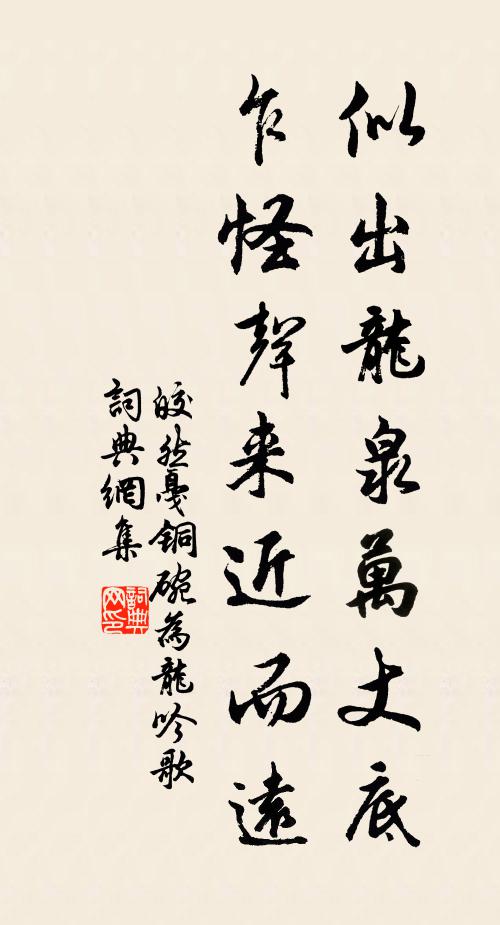 似出龍泉萬丈底
乍怪聲来近而遠
皎然戛銅碗為龍吟歌
詞典網集
詞典
网印